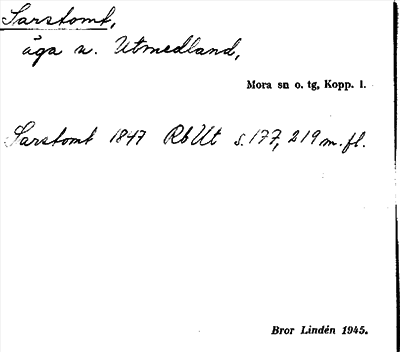 Sarstomt,
äga n. Utmedland,
Mora sn o. tg, Kopp. l.
Sarstomt 1847 Rb Ut s. 177, 219 m. fl.
Bror Lindén 1945.